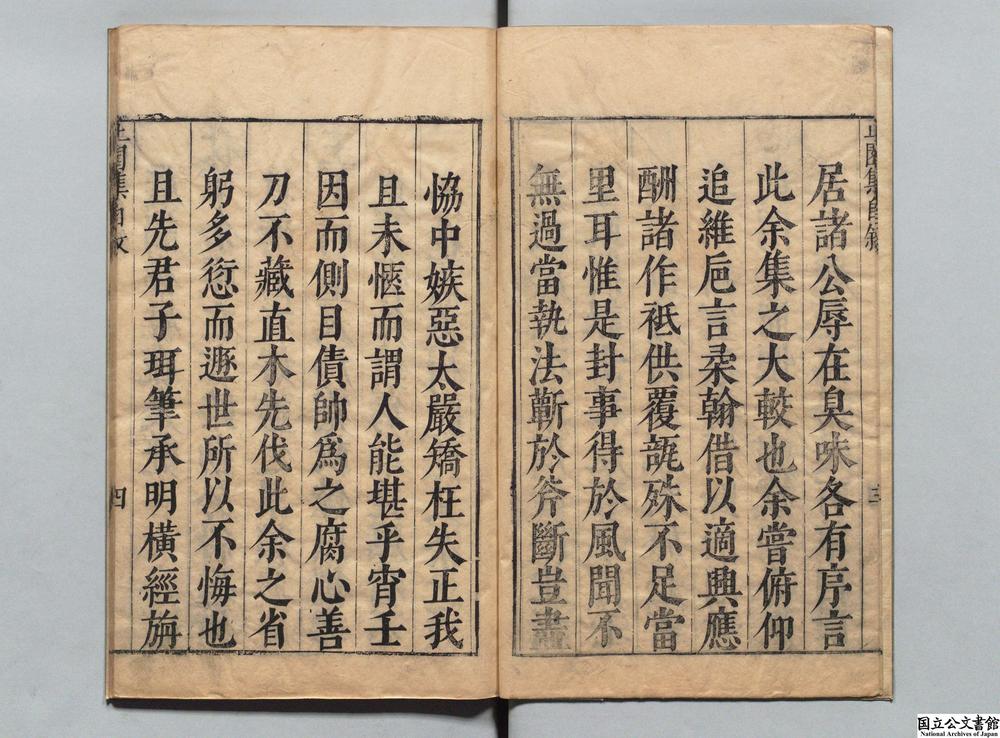 居諸公辱在臭味各有序言
此余集之大較也余嘗俯仰
追維巵言朵翰借以適興應
酬諸作祗供覆瓿殊不足當
里耳惟是封事得於風聞不
無過當執法蘄於斧斷豈盡
三
恊中嫉惡太嚴矯枉失正我
且未愜而謂人能堪乎宵壬
因而側目債帥為之腐心善
刀不藏直木先伐此余之省
躬多愆而遯世所以不悔也
且先君子珥筆承明橫經旃
四
国立公文書館
National Archives of Japan